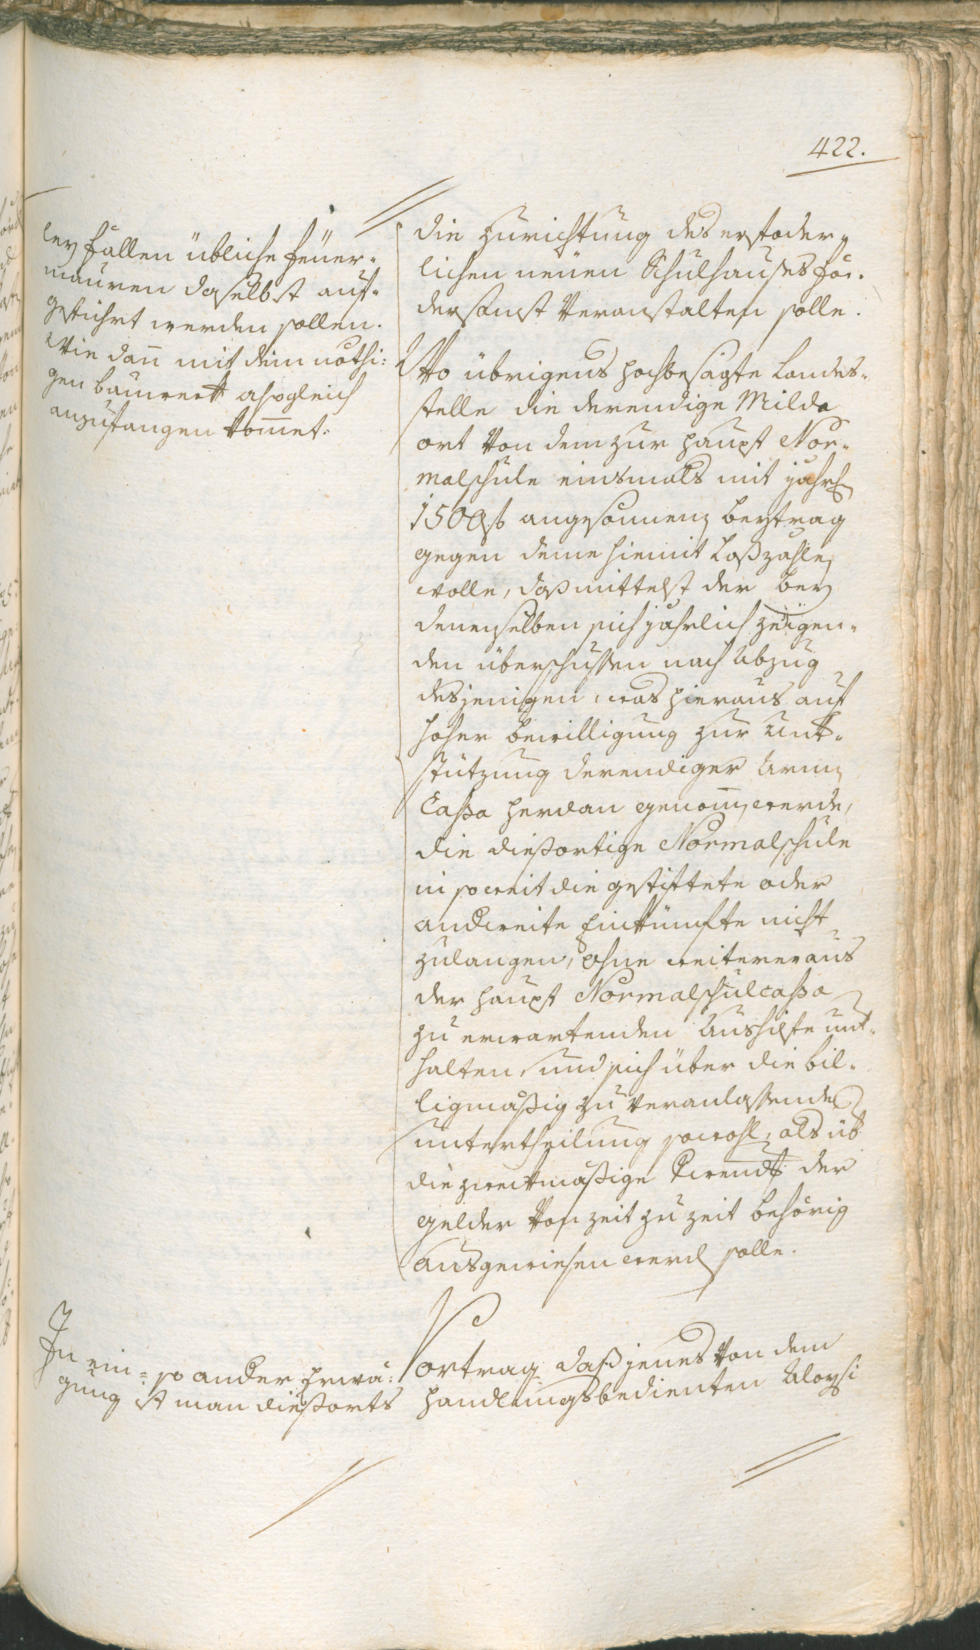 422.
ley fällen übliche Feüer-
mauren daselbst auf-
geführt werden sollen.
Wie dan̄ mit dem nöthi-
gen bauwerk alsogleich
anzufangen kom̄et.
die zurichtung des erforder-
lichen neuen Schulhauses för-
dersamst veranstalten solle.
Wo übrigens hochbesagte Landes-
stelle die derendige Milde
ort von dem zur haupt Nor-
malschule einsmals mit jährl
1500 f angesonnenen beytrag
gegen deme hiemit Loszahlen
wolle, daß mittelst der bey
denenselben sich jährlich zeigen-
den überschüssen nach Abzug
desjenigen, was hieraus auf
hoher bewilligung zur unt-
stützung derendiger Armen
Cassa herdan genom̄en werde,
die diesortige Normalschule
in soweit die gestiftete oder
andweite Einkünfte nicht
zulangen, ohne weiterer aus
der haupt Normalschulcassa
zu erwartenden Aushilfe unt-
halten, und sich über die bil-
ligmäßig zu veranlassende
untertheilung sowohl, als üb
die zweckmäßige Verwendg der
gelder von zeit zu zeit behörig
ausgewiesen werden solle.
In ein- so ander Erwä-
gung ist man diesorts
Vortrag, daß jenes von dem
handlungsbedienten Aloysi